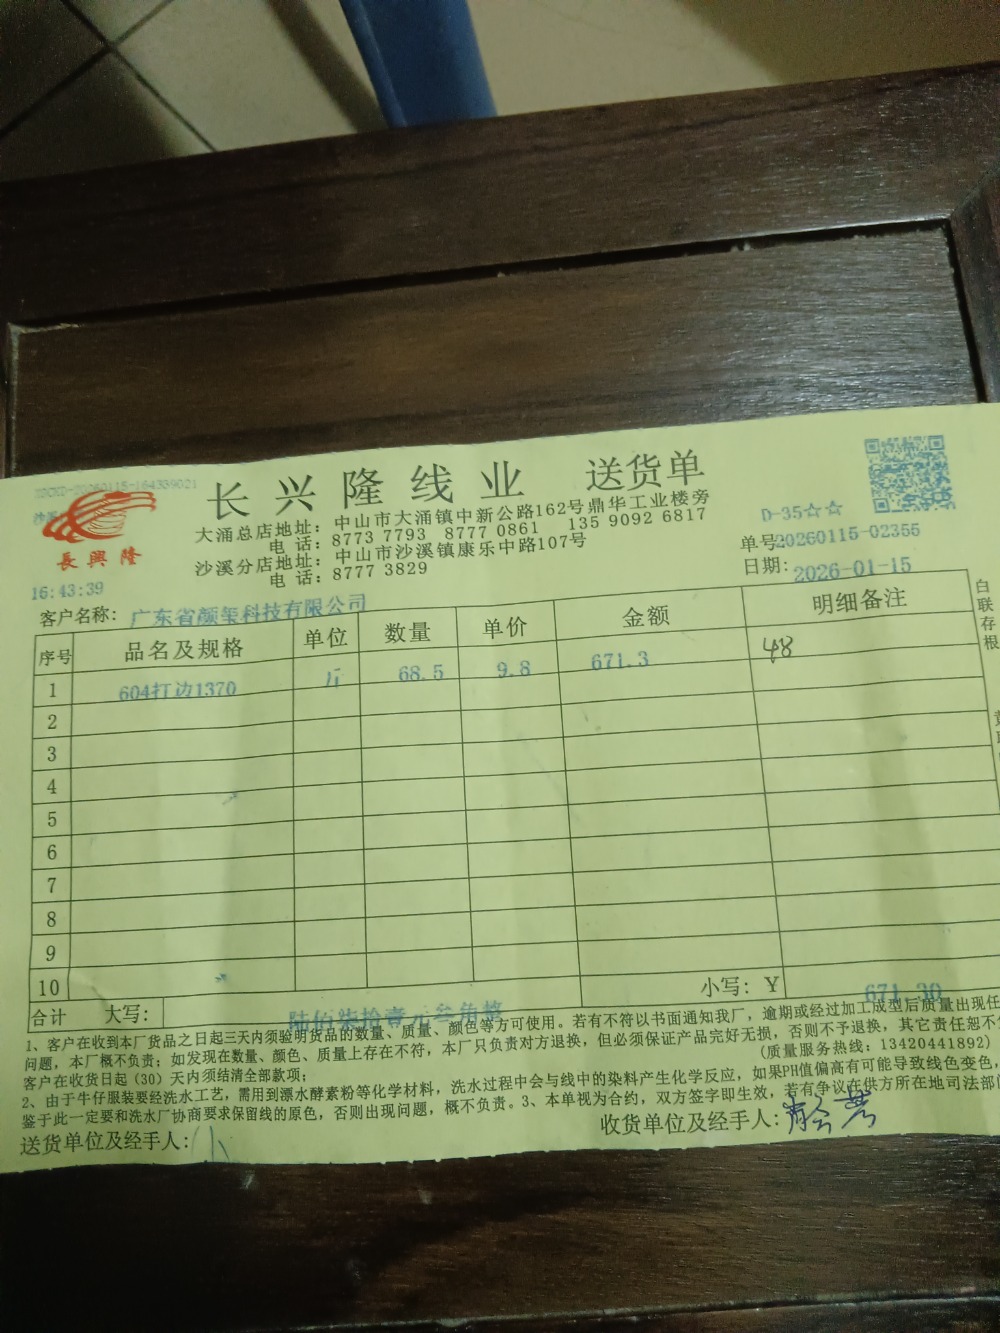 長興隆
长兴隆线业 送货单
大涌总店地址：中山市大涌镇中新公路162号鼎华工业楼旁
电 话：8773 7793 8777 0861 135 9092 6817
沙溪分店地址：中山市沙溪镇康乐中路107号
电 话：8777 3829
D-35☆☆
单号20260115-02355
日期：2026-01-15
16:43:39
客户名称：广东省颜玺科技有限公司
序号 品名及规格 单位 数量 单价 金额 明细备注
1 604打边1370 斤 68.5 9.8 671.3 48
2
3
4
5
6
7
8
9
10
小写：Y 671.30
合计 大写：陆佰柒拾壹元叁角整
1、客户在收到本厂货品之日起三天内须验明货品的数量、质量、颜色等方可使用。若有不符以书面通知我厂，逾期或经过加工成型后质量出现任
问题，本厂概不负责；如发现在数量、颜色、质量上存在不符，本厂只负责对方退换，但必须保证产品完好无损，否则不予退换，其它责任恕不
客户在收货日起（30）天内须结清全部款项； (质量服务热线：13420441892)
2、由于牛仔服装要经洗水工艺，需用到漂水酵素粉等化学材料，洗水过程中会与线中的染料产生化学反应，如果PH值偏高有可能导致线色变色，
鉴于此一定要和洗水厂协商要求保留线的原色，否则出现问题，概不负责。3、本单视为合约，双方签字即生效，若有争议在供方所在地司法部
送货单位及经手人： 收货单位及经手人：
白联存根